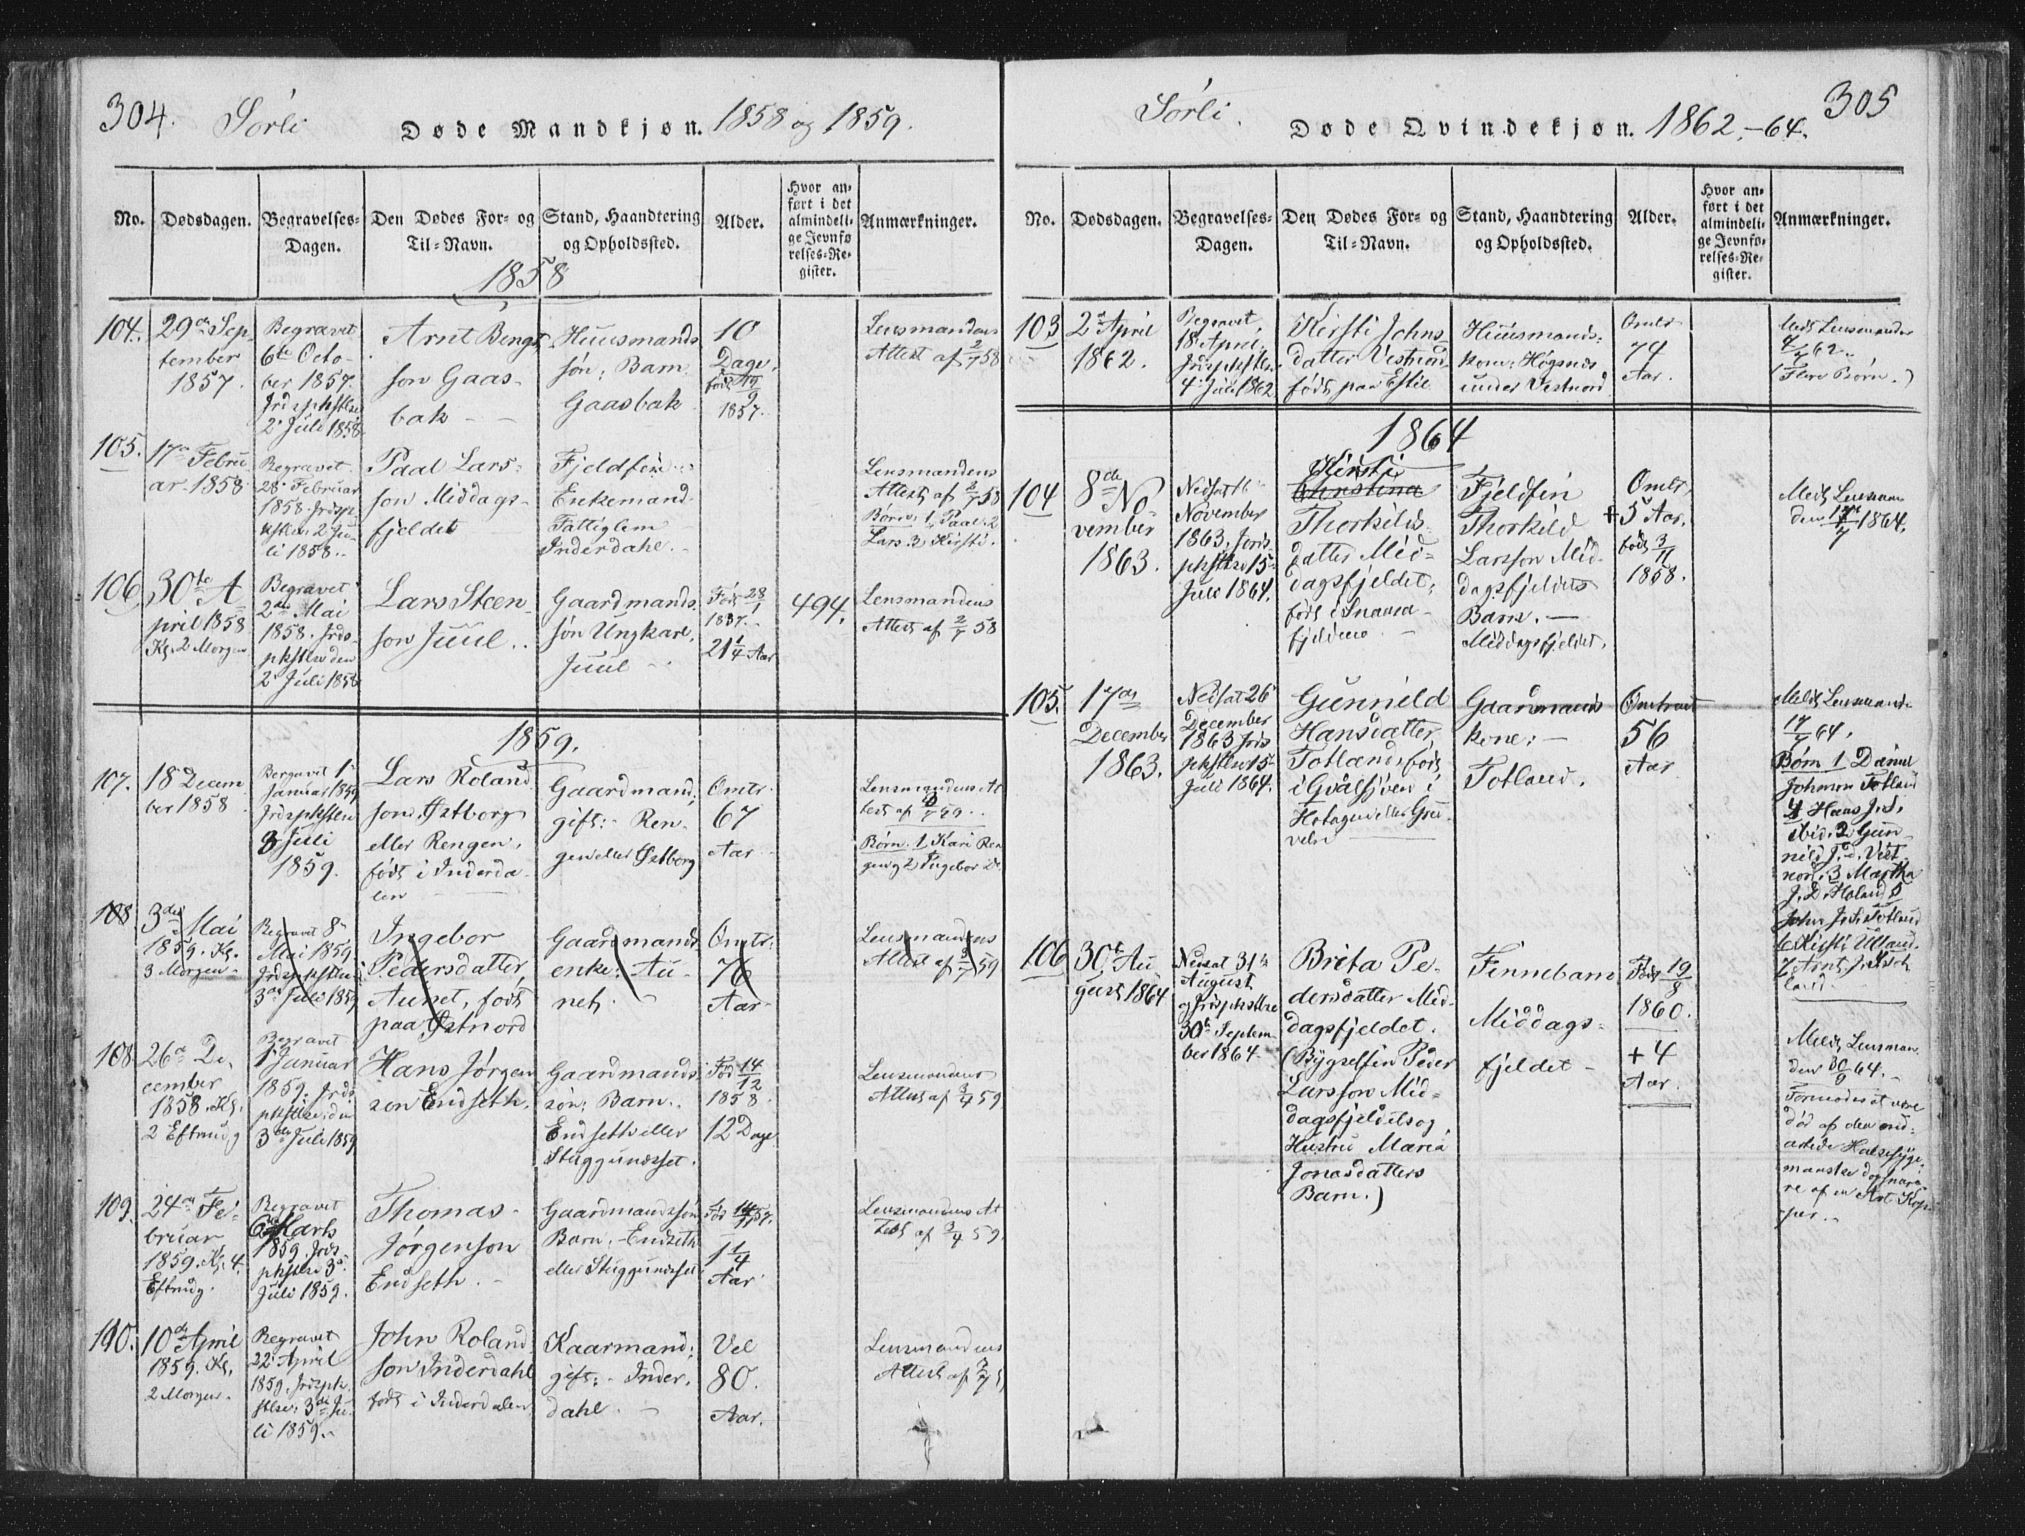 304. Sörli Døde Mandkjøn. 1858 og 1859.
No. Dødsdagen. Begravelses-Dagen. Den Dødes For- og Til-Navn. Stand, Haandtering og Opholdssted. Alder. Hvor anført i det almindelige Jevnførelses-Register. Anmærkninger.
1858
104. 29de September 1857.
Begravet
6te Octo-
ber 1857.
Jrdspkstlse
2 Juli 1858
Arnt Bengt
son Gaas-
bak
Huusmands
søn; Barn
Gaasbak
10
Dage.
født 19/9
1857.
Lensmandens
Attest af 2/7 58
105. 17de Febru
ar 1858
Begravet
28 Februar
1858. Jrdsp
kstlse 2 Ju-
li 1858.
Paal Lars-
son Middags-
fjeldet
Fjeldfin
Enkemand
Fattiglem
Inderdahl.
Lensmandens
Attest af 2/7 58
Børn: 1 Paal 2
Lars 3 Kirsti.
106. 30te A
pril 1858
Kl. 2 Morgen
Begravet
2den Mai
1858. Jrds-
pkstlse den
2 Juli 1858
Lars Steen-
son Juul.
Gaardmands
søn Ungkarl.
Juul
Født 28/1
1837.
21 1/4 Aar
494.
Lensmandens
Attest af 2/7 58
1859.
107. 18 Decem
ber 1858.
Begravet 1
Januar 1859
Jrdspkstlse
3 Juli
1859.
Lars Roland
son Østborg
eller Rengen,
født i Inderda-
len
Gaardmand,
gift: Ren-
gen eller Østborg
Omtr.
67
Aar
Lensmandens At
test af
Børn. 1 Kari Ren
gen og 2 Ingebor
108. 3die Mai
1859. Kl.
3 Morgen
Begravet 8
Mai 1859
Jrdspkstlse
3die Juli 1859
Ingebor
Pedersdatter
Aunet, født
paa Østnord
Gaardmands
enke: Au-
net.
Omtr.
76
Aar
Lensmandens
Attest af 3/7 59
108. 26de De-
cember
1858. Kl.
2 Eftmdg
Begravet
1 Januar
1859. Jrds
pkstlse den
3die Juli 1859
Hans Jørgen
sen Endseth.
Gaardmands
søn: Barn.
Endseth eller
Skuggundset.
Fød 14/12
1858.
12 Dage
Lensmandens
Attest af 3/7 59
109. 24de Fe-
bruar
1859. Kl. 4.
Eftmdg.
Begravet
6 Marts
1859. Jrds-
pkstlse 3
Juli 1859.
Thomas
Jørgenson
Endseth.
Gaardmandssøn
Barn. Endseth
eller Skuggundset
1 1/4
Aar
Lensmandens At
test af 3/7 59.
110. 10de April
1859. Kl.
2 Morgen.
Begravet
22 April
1859. Jrdspk-
stlse: 3die Ju-
li 1859.
John Roland
son Inderdahl
født i Inderdalen
Kaarmand;
gift: Inder-
dahl.
Vel
80.
Aar.
Lensmandens
Attest af 3/7
Sörli. Døde Qvindekjøn. 1862.-64. 305
No. Dødsdagen. Begravelses-Dagen. Den Dødes For- og Til-Navn. Stand, Haandtering og Opholdssted. Alder. Hvor anført i det almindelige Jevnførelses-Register. Anmærkninger.
103 2de April
1862.
Begravet
18 April.
Jrdspkstlse
4 Juli 1862
Kirsti Johns
datter Vestnord
født paa Estil
Huusmands-
kone: Høgsnes
under Vestnord
Omtr
74
Aar.
Meldt Lensmanden
4/7 62.
(Flere Børn.)
1864
104 8de No-
vember
1863.
Nedsat 16
November
1863. Jords-
pkstlse 15
Juli 1864.
Kirsti
Christina
Thorkilds-
datter Mid-
dagsfjeldet,
født i Snaasa-
fjeldene
Fjeldfin
Thorkild
Larsson Mid-
dagsfjeldets
Barn.
Middagsfjeldet.
Omtr.
+ 5 Aar.
født 3/11
1858.
Meldt Lensman
den 17/7 1864.
105. 17de
December
1863.
Nedsat 26
December
1863 Jrds
pkstlse 15
Juli 1864.
Gunnild
Hansdatter
Totland, født
i Gvalsjøen i
Hotagen eller
Gaardmands
kone:
Totland.
Omtrent
56
Aar
Meldt Lensmanden
17/7 64.
Børn 1 Daniel
Johnson Totland
4 Hans J.s.
ibid. 2 Gun-
nild J.d. Vest
nord. 3 Martha
J.D. Holand 5
John J.s. Totland
6 Kirsti Ulland.
7 Arnt J.s. Tot
land
106 30te Au-
gust 1864
Nedsat 31
August
og Jrdspkstlse
30te Septem
ber 1864
Brita Pe-
dersdatter Mid-
dagsfjeldet.
(Bygselfin Peder
Larsson Mid-
dagsfjeldets og
Hustru Maria
Jonasdatters
Barn.)
Finnebarn
Middags-
fjeldet
Født 19/8
1860.
+ 4
Aar.
Meldt Lensman
den 30/9 64.
Formodes at være
død af den ud-
artede Halssyge
maaske dog snare-
re af en Art Kop-
per.